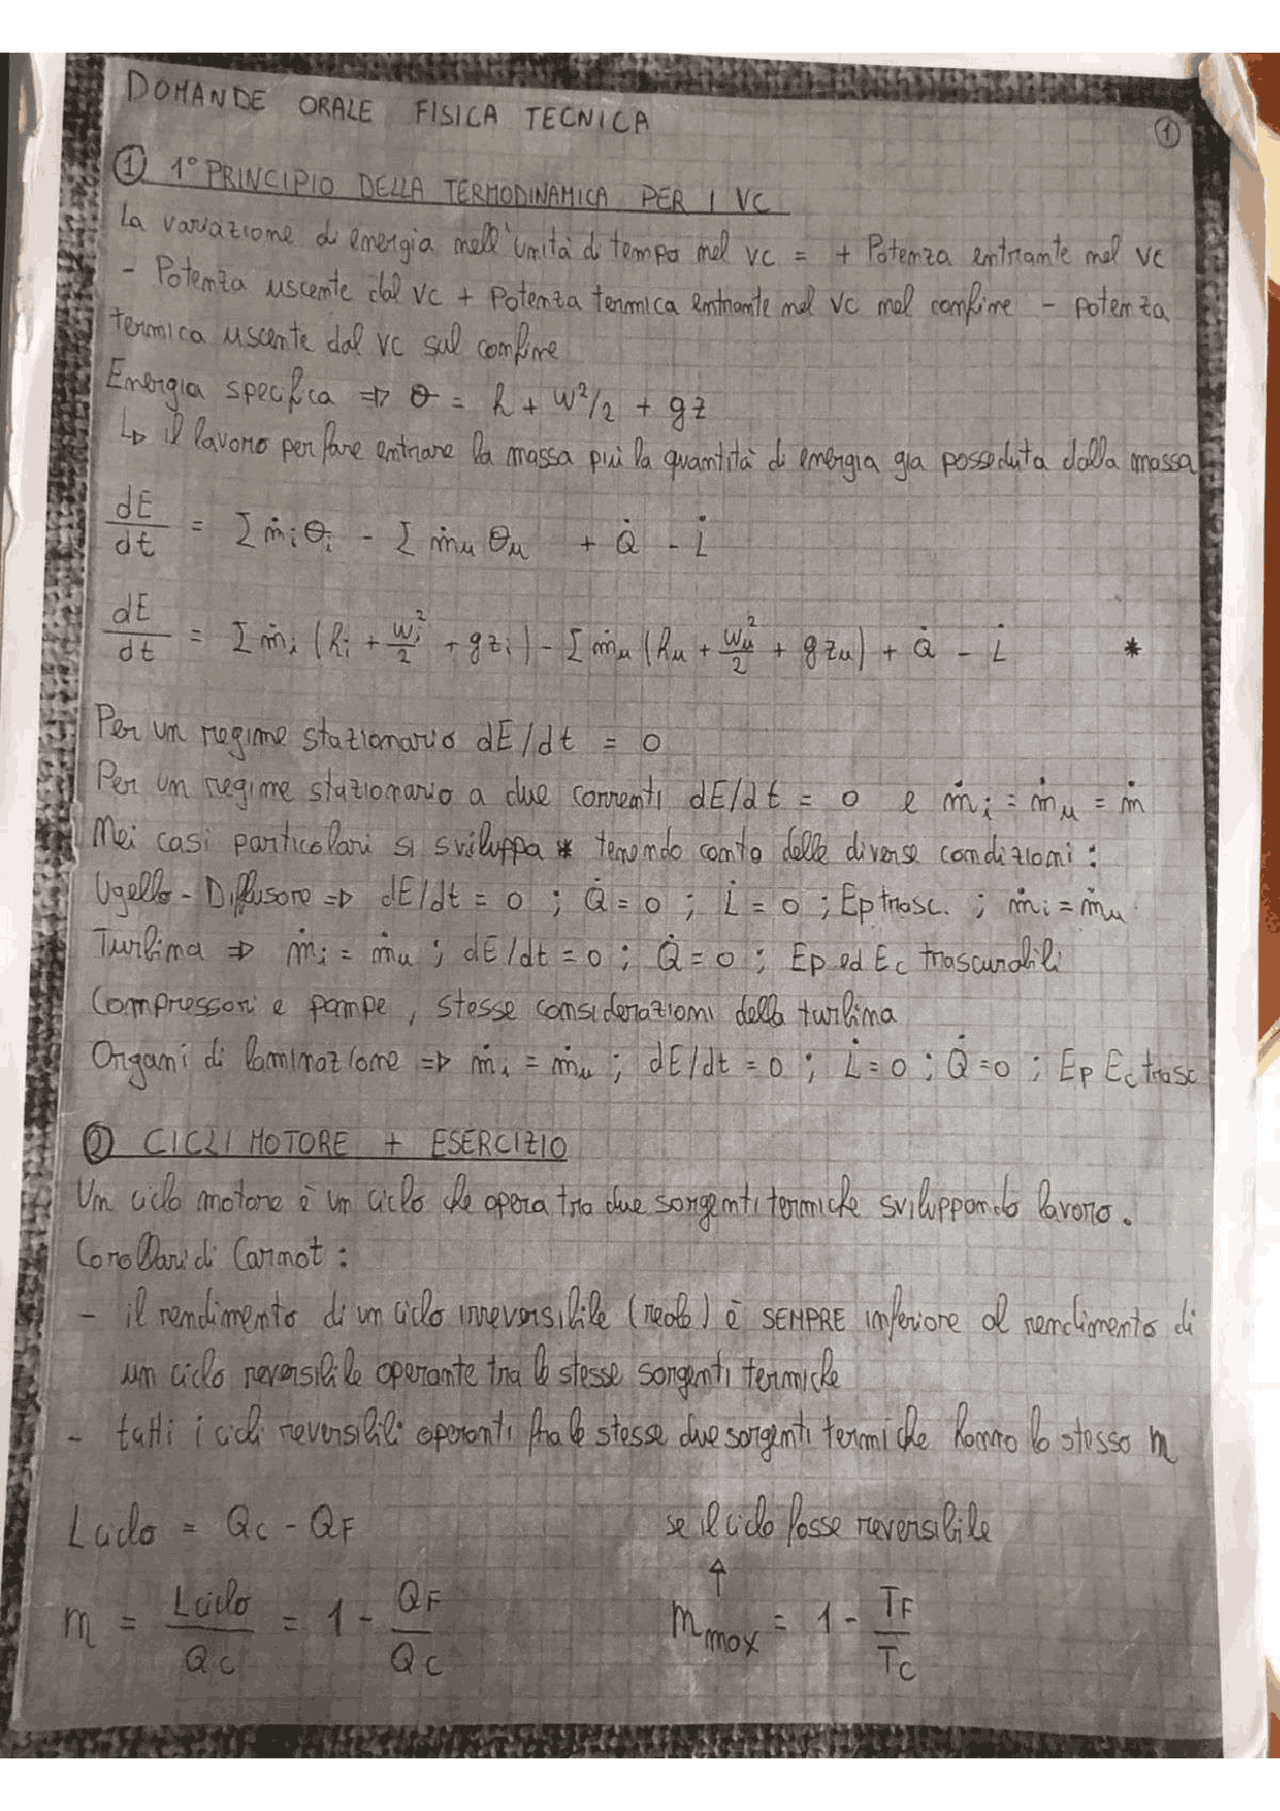 DOMANDE ORALE FISICA TECNICA
1
① 1° PRINCIPIO DELLA TERMODINAMICA PER I VC
La variazione di energia nell'unità di tempo nel VC = + Potenza entrante nel VC
- Potenza uscente dal VC + Potenza termica entrante nel VC nel confine - potenza
termica uscente dal VC sul confine
Energia specifica ⇒ θ = h + w²/2 + gz
↳ il lavoro per fare entrare la massa più la quantità di energia gia posseduta dalla massa
dE/dt = Σ ṁi θi - Σ ṁu θu + Q̇ - L̇
dE/dt = Σ ṁi (hi + wi²/2 + gzi) - Σ ṁu (hu + wu²/2 + gzu) + Q̇ - L̇ *
Per un regime stazionario dE/dt = 0
Per un regime stazionario a due correnti dE/dt = 0 e ṁi = ṁu = ṁ
Nei casi particolari si sviluppa * tenendo conto delle diverse condizioni :
Ugello - Diffusore ⇒ dE/dt = 0 ; Q̇ = 0 ; L̇ = 0 ; Ep trasc. ; ṁi = ṁu
Turbina ⇒ ṁi = ṁu ; dE/dt = 0 ; Q̇ = 0 ; Ep ed Ec trascurabili
Compressori e pompe , stesse considerazioni della turbina
Organi di laminazione ⇒ ṁi = ṁu ; dE/dt = 0 ; L̇ = 0 ; Q̇ = 0 ; Ep Ec trasc
② CICLI MOTORE + ESERCIZIO
Un ciclo motore è un ciclo che opera tra due sorgenti termiche sviluppando lavoro .
Corollari di Carnot :
- il rendimento di un ciclo irreversibile (reale) è SEMPRE inferiore al rendimento di
un ciclo reversibile operante tra le stesse sorgenti termiche
- tutti i cicli reversibili operanti fra le stesse due sorgenti termiche hanno lo stesso η
Lciclo = QC - QF
se il ciclo fosse reversibile
↑
η = Lciclo/QC = 1 - QF/QC
ηmax = 1 - TF/TC